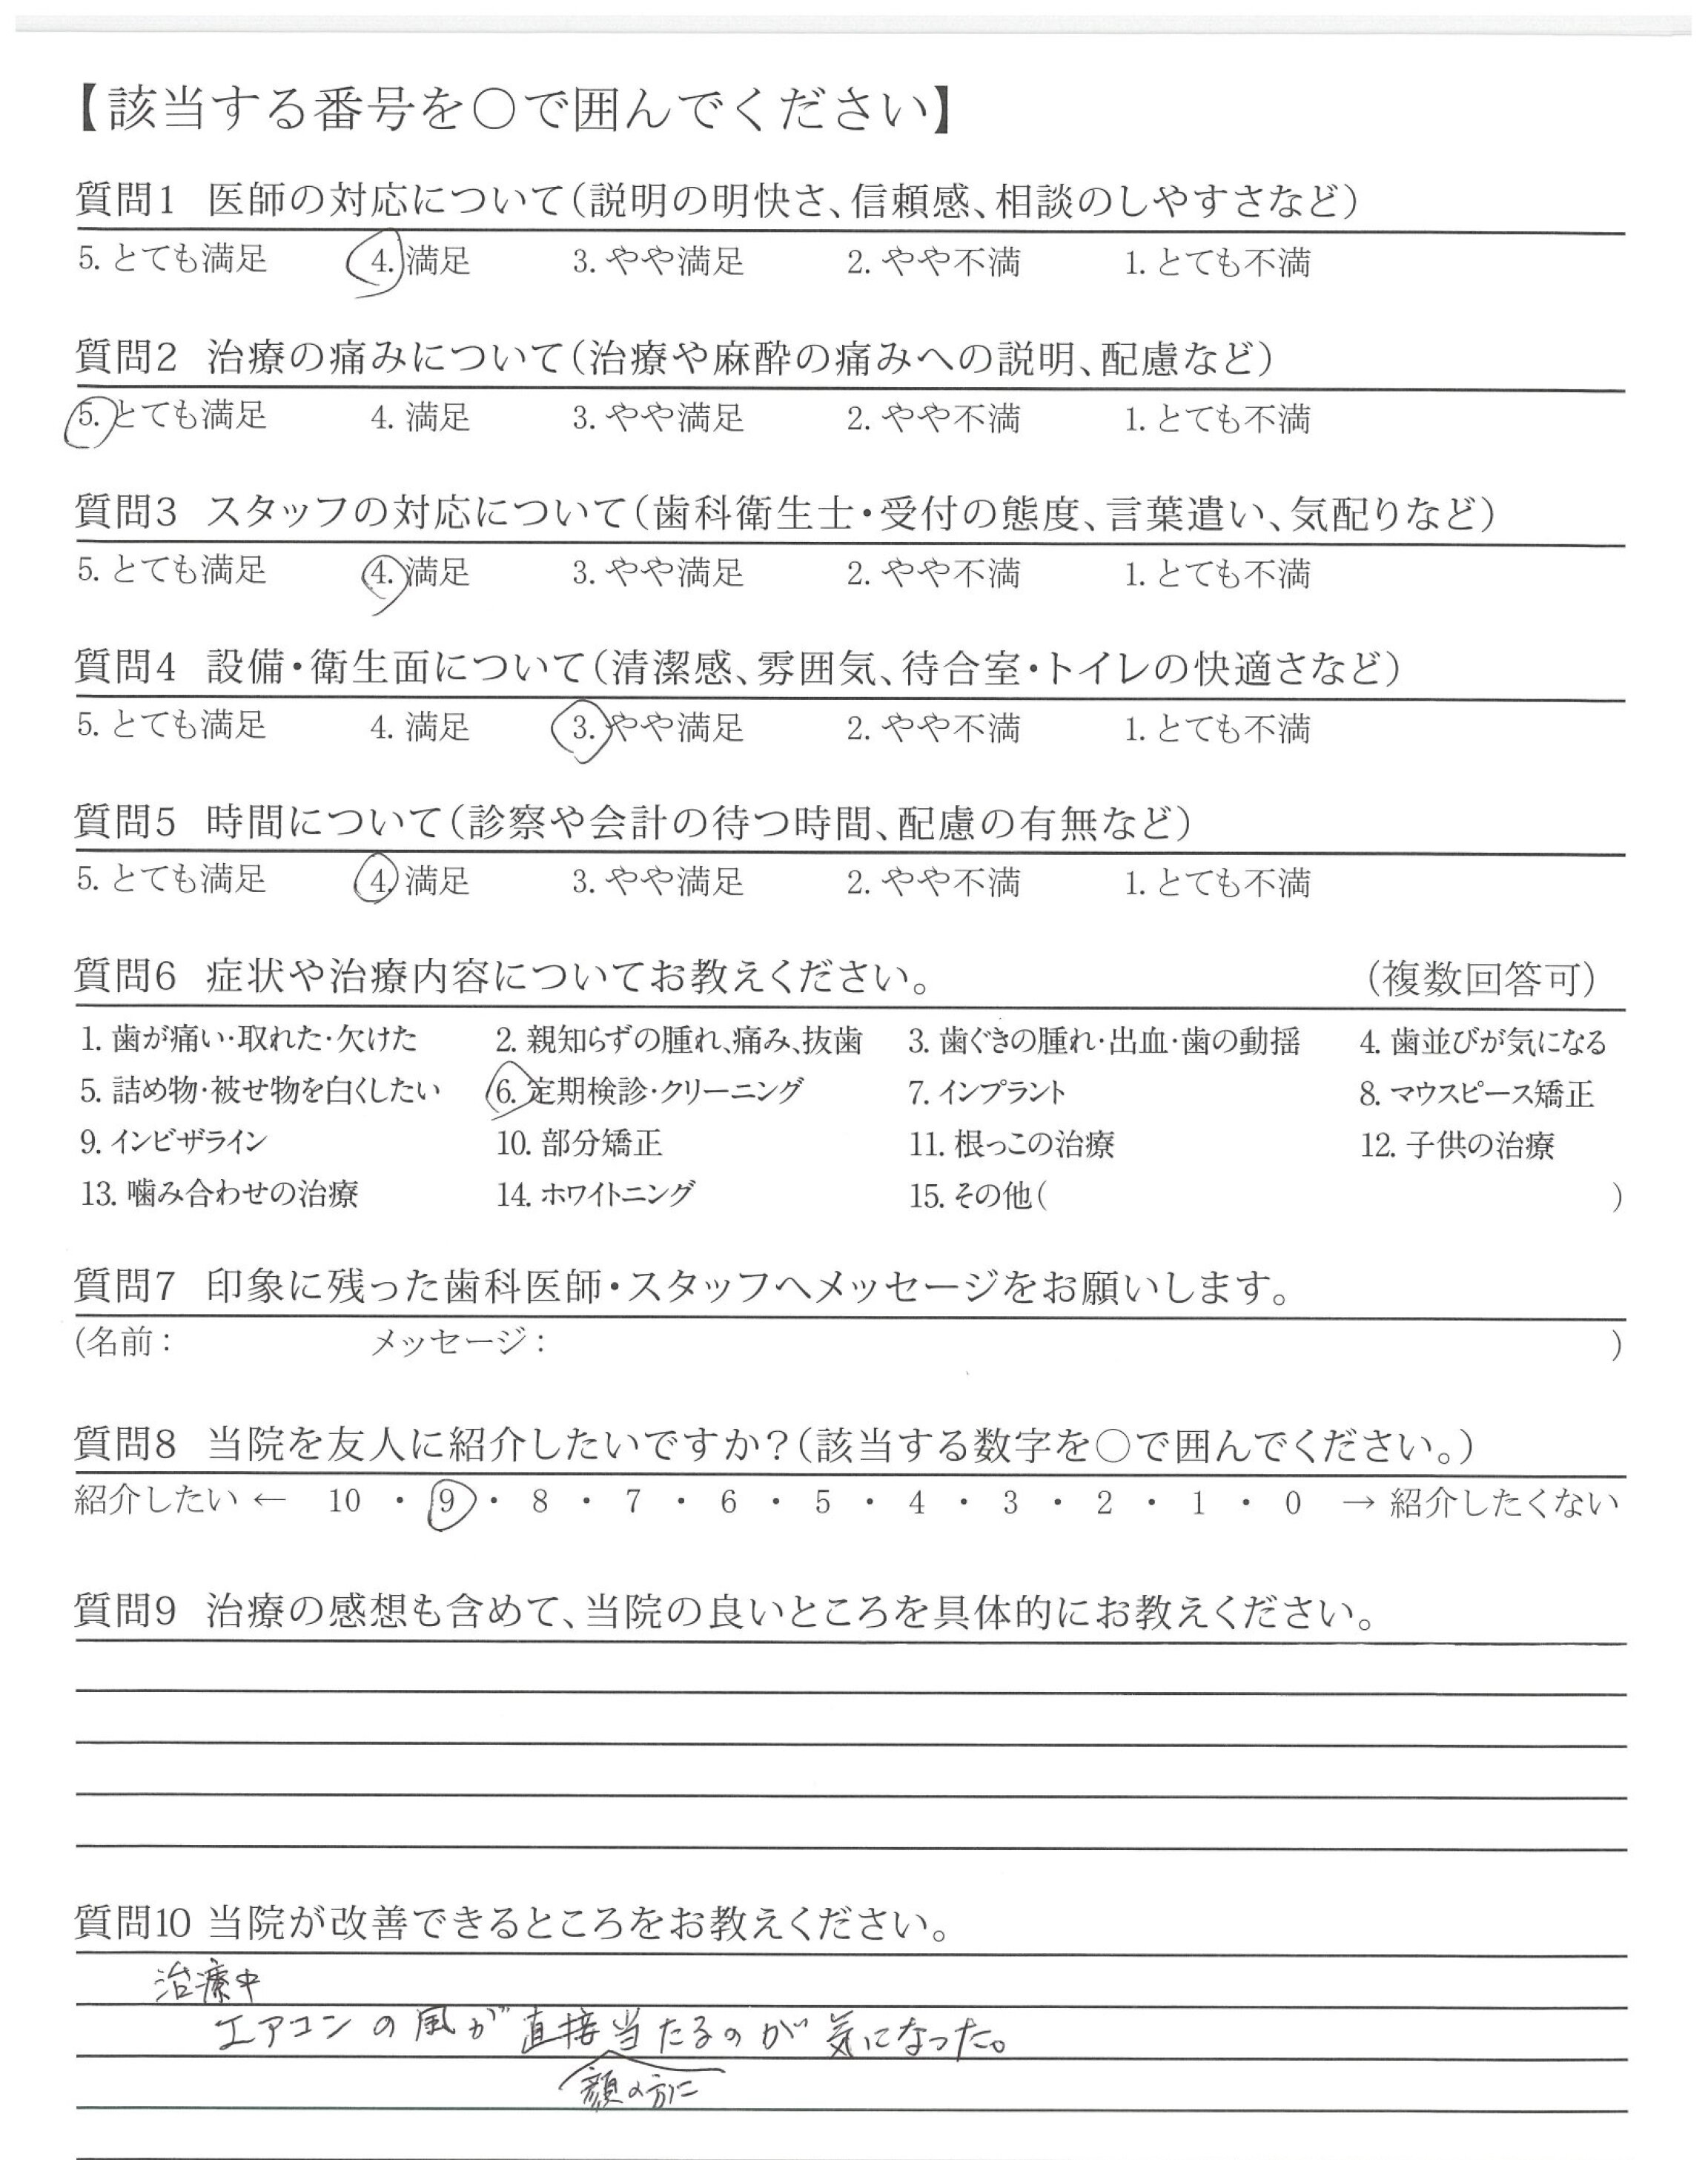 【該当する番号を○で囲んでください】
質問1 医師の対応について(説明の明快さ、信頼感、相談のしやすさなど)
5. とても満足 4. 満足 3. やや満足 2. やや不満 1. とても不満
質問2 治療の痛みについて(治療や麻酔の痛みへの説明、配慮など)
5. とても満足 4. 満足 3. やや満足 2. やや不満 1. とても不満
質問3 スタッフの対応について(歯科衛生士・受付の態度、言葉遣い、気配りなど)
5. とても満足 4. 満足 3. やや満足 2. やや不満 1. とても不満
質問4 設備・衛生面について(清潔感、雰囲気、待合室・トイレの快適さなど)
5. とても満足 4. 満足 3. やや満足 2. やや不満 1. とても不満
質問5 時間について(診察や会計の待つ時間、配慮の有無など)
5. とても満足 4. 満足 3. やや満足 2. やや不満 1. とても不満
質問6 症状や治療内容についてお教えください。 (複数回答可)
1. 歯が痛い・取れた・欠けた 2. 親知らずの腫れ、痛み、抜歯 3. 歯ぐきの腫れ・出血・歯の動揺 4. 歯並びが気になる
5. 詰め物・被せ物を白くしたい 6. 定期検診・クリーニング 7. インプラント 8. マウスピース矯正
9. インビザライン 10. 部分矯正 11. 根っこの治療 12. 子供の治療
13. 噛み合わせの治療 14. ホワイトニング 15. その他( )
質問7 印象に残った歯科医師・スタッフへメッセージをお願いします。
(名前: メッセージ: )
質問8 当院を友人に紹介したいですか?(該当する数字を○で囲んでください。)
紹介したい ← 10 ・ 9 ・ 8 ・ 7 ・ 6 ・ 5 ・ 4 ・ 3 ・ 2 ・ 1 ・ 0 → 紹介したくない
質問9 治療の感想も含めて、当院の良いところを具体的にお教えください。
質問10 当院が改善できるところをお教えください。
治療中
エアコンの風が直接当たるのが気になった。
顔の方に